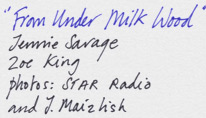 "From Under Milk Wood"
Jennie Savage
Zoe King
photos: STAR Radio
and J. Maizlish